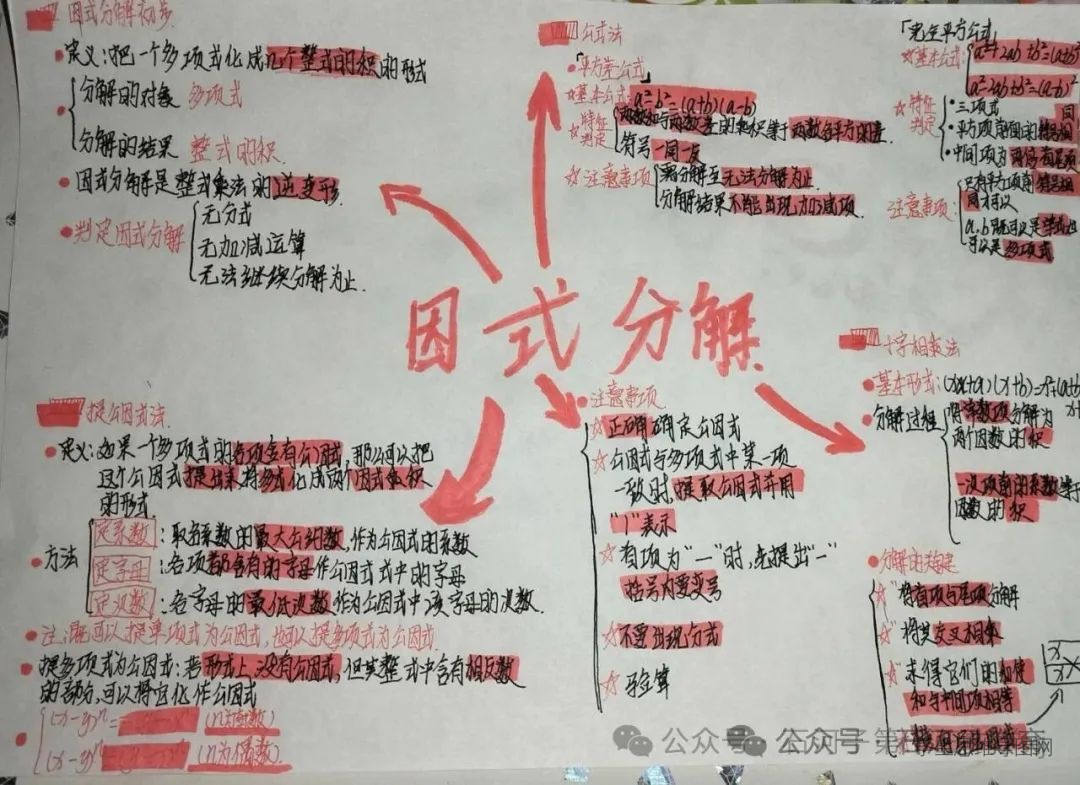 因式分解初步
定义:把一个多项式化成几个整式的积的形式
分解的对象 多项式
分解的结果 整式的积
因式分解是整式乘法的逆变形
判定因式分解
无分式
无加减运算
无法继续分解为止
公式法
「平方差公式」
基本公式: a²-b²=(a+b)(a-b)
特征判定
两数和与两数差的乘积等于两数的平方的差
符号一同一反
注意事项
需分解至无法分解为止
分解结果不能出现加减项
「完全平方公式
基本公式:
a²+2ab+b²=(a+b)²
a²-2ab+b²=(a-b)²
特征判定
三项式
平方项前面的符号相同
中间项为两倍首尾项
注意事项:
只有平方项前符号相同才可以
a,b既可以是单项也可以是多项式
因式分解
提公因式法
定义:如果一个多项式的各项含有公因式,那么可以把
这个公因式提出来将多式化成两个因式乘积
的形式
方法
定系数:取各系数的最大公约数,作为公因式的系数
定字母:各项都含有的字母作公因式式中的字母
定次数:各字母的最低次数作为公因式中该字母的次数
注:既可以提单项式为公因式,也可以提多项式为公因式
提多项式为公因式:若形式上没有公因式,但实整式中含有相反数
的部分,可以将它化作公因式
(x-y)ⁿ=
(x-y)ⁿ= (n为偶数)
注意事项
正确确定公因式
公因式与多项式中某一项
一致时,提取公因式并用
"1"表示
首项为"一"时,先提出"-"
括号内要变号
不要出现分式
验算
十字相乘法
基本形式:(x+a)(x+b)=x²+(a+b)
分解过程
将常数项分解为
两个因数的积
一次项前的系数等于
因数的
分解的构建
将首项与尾项分解
将其交叉相乘
求得它们的和使
和与中间项相等
公众号
公众号